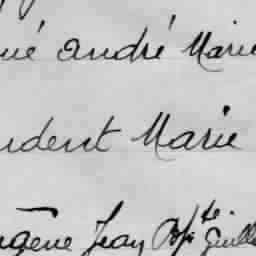 né André Marie
udent Marie
gène Jean Bpte Guill